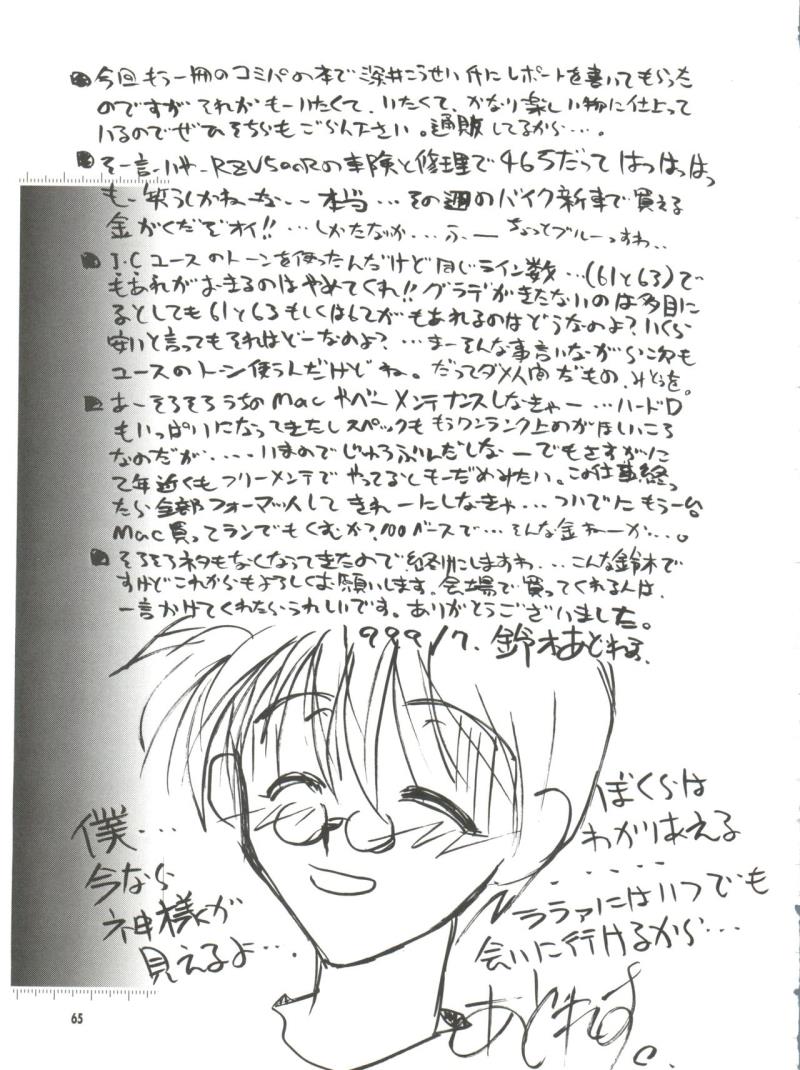 今回もう一冊のコミパの本で深井こうせい氏にレポートを書いてもらった
のですが それがもーいたくて、いたくて、かなり楽しい物に仕上って
いるのでぜひそちらもごらん下さい。通販してるから…。
そー言いやーRZV500Rの車険と修理で465だって はっはっはっ
もー笑うしかねーなー 本当…その週のバイク新車で買える
金がくだぞオイ!!…しかたなか…ふー ちょっとブルーっすわ..
I.Cユースのトーンを使ったんだけど同じライン数…(61と63)で
もあれがおきるのはやめてくれ!!グラデがきたないのは多目に
るとしても61と63もしくは6Lでがもあれるのはどうなのよ?いくら
安いと言ってもそれはどーなのよ?…まーそんな事言いながら次も
ユースのトーン使うんだけどね。だってダメ人間だもの、みとぅを。
あーそろそろうちのMacやべーメンテナンスしなきゃー…ハードD
もいっぱいになってきたしスペックももうワンランク上のがほしいころ
なのだが....いまのでじゅうぶんだしなーでもさすがに
て年近くもフリーメンテでやってるともーだめみたい。この仕事終っ
たら全部フォーマットしてきれーにしなきゃ…ついでにもう一台
Mac買ってランでもくむか?100ベースで…そんな金ねーか…。
そろそろネタもなくなってきたので終りにしますわ...こんな鈴木で
すけどこれからもよろしくお願いします。会場で買ってくれる人は、
一言かけてくれたらうれしいです。ありがとうございました。
1999/7. 鈴木あどれす.
僕…
今なら
神様が
見えるよ…
ぼくらは
わかりあえる
......
ララァにはいつでも
会いに行けるから…
あどれす。
65